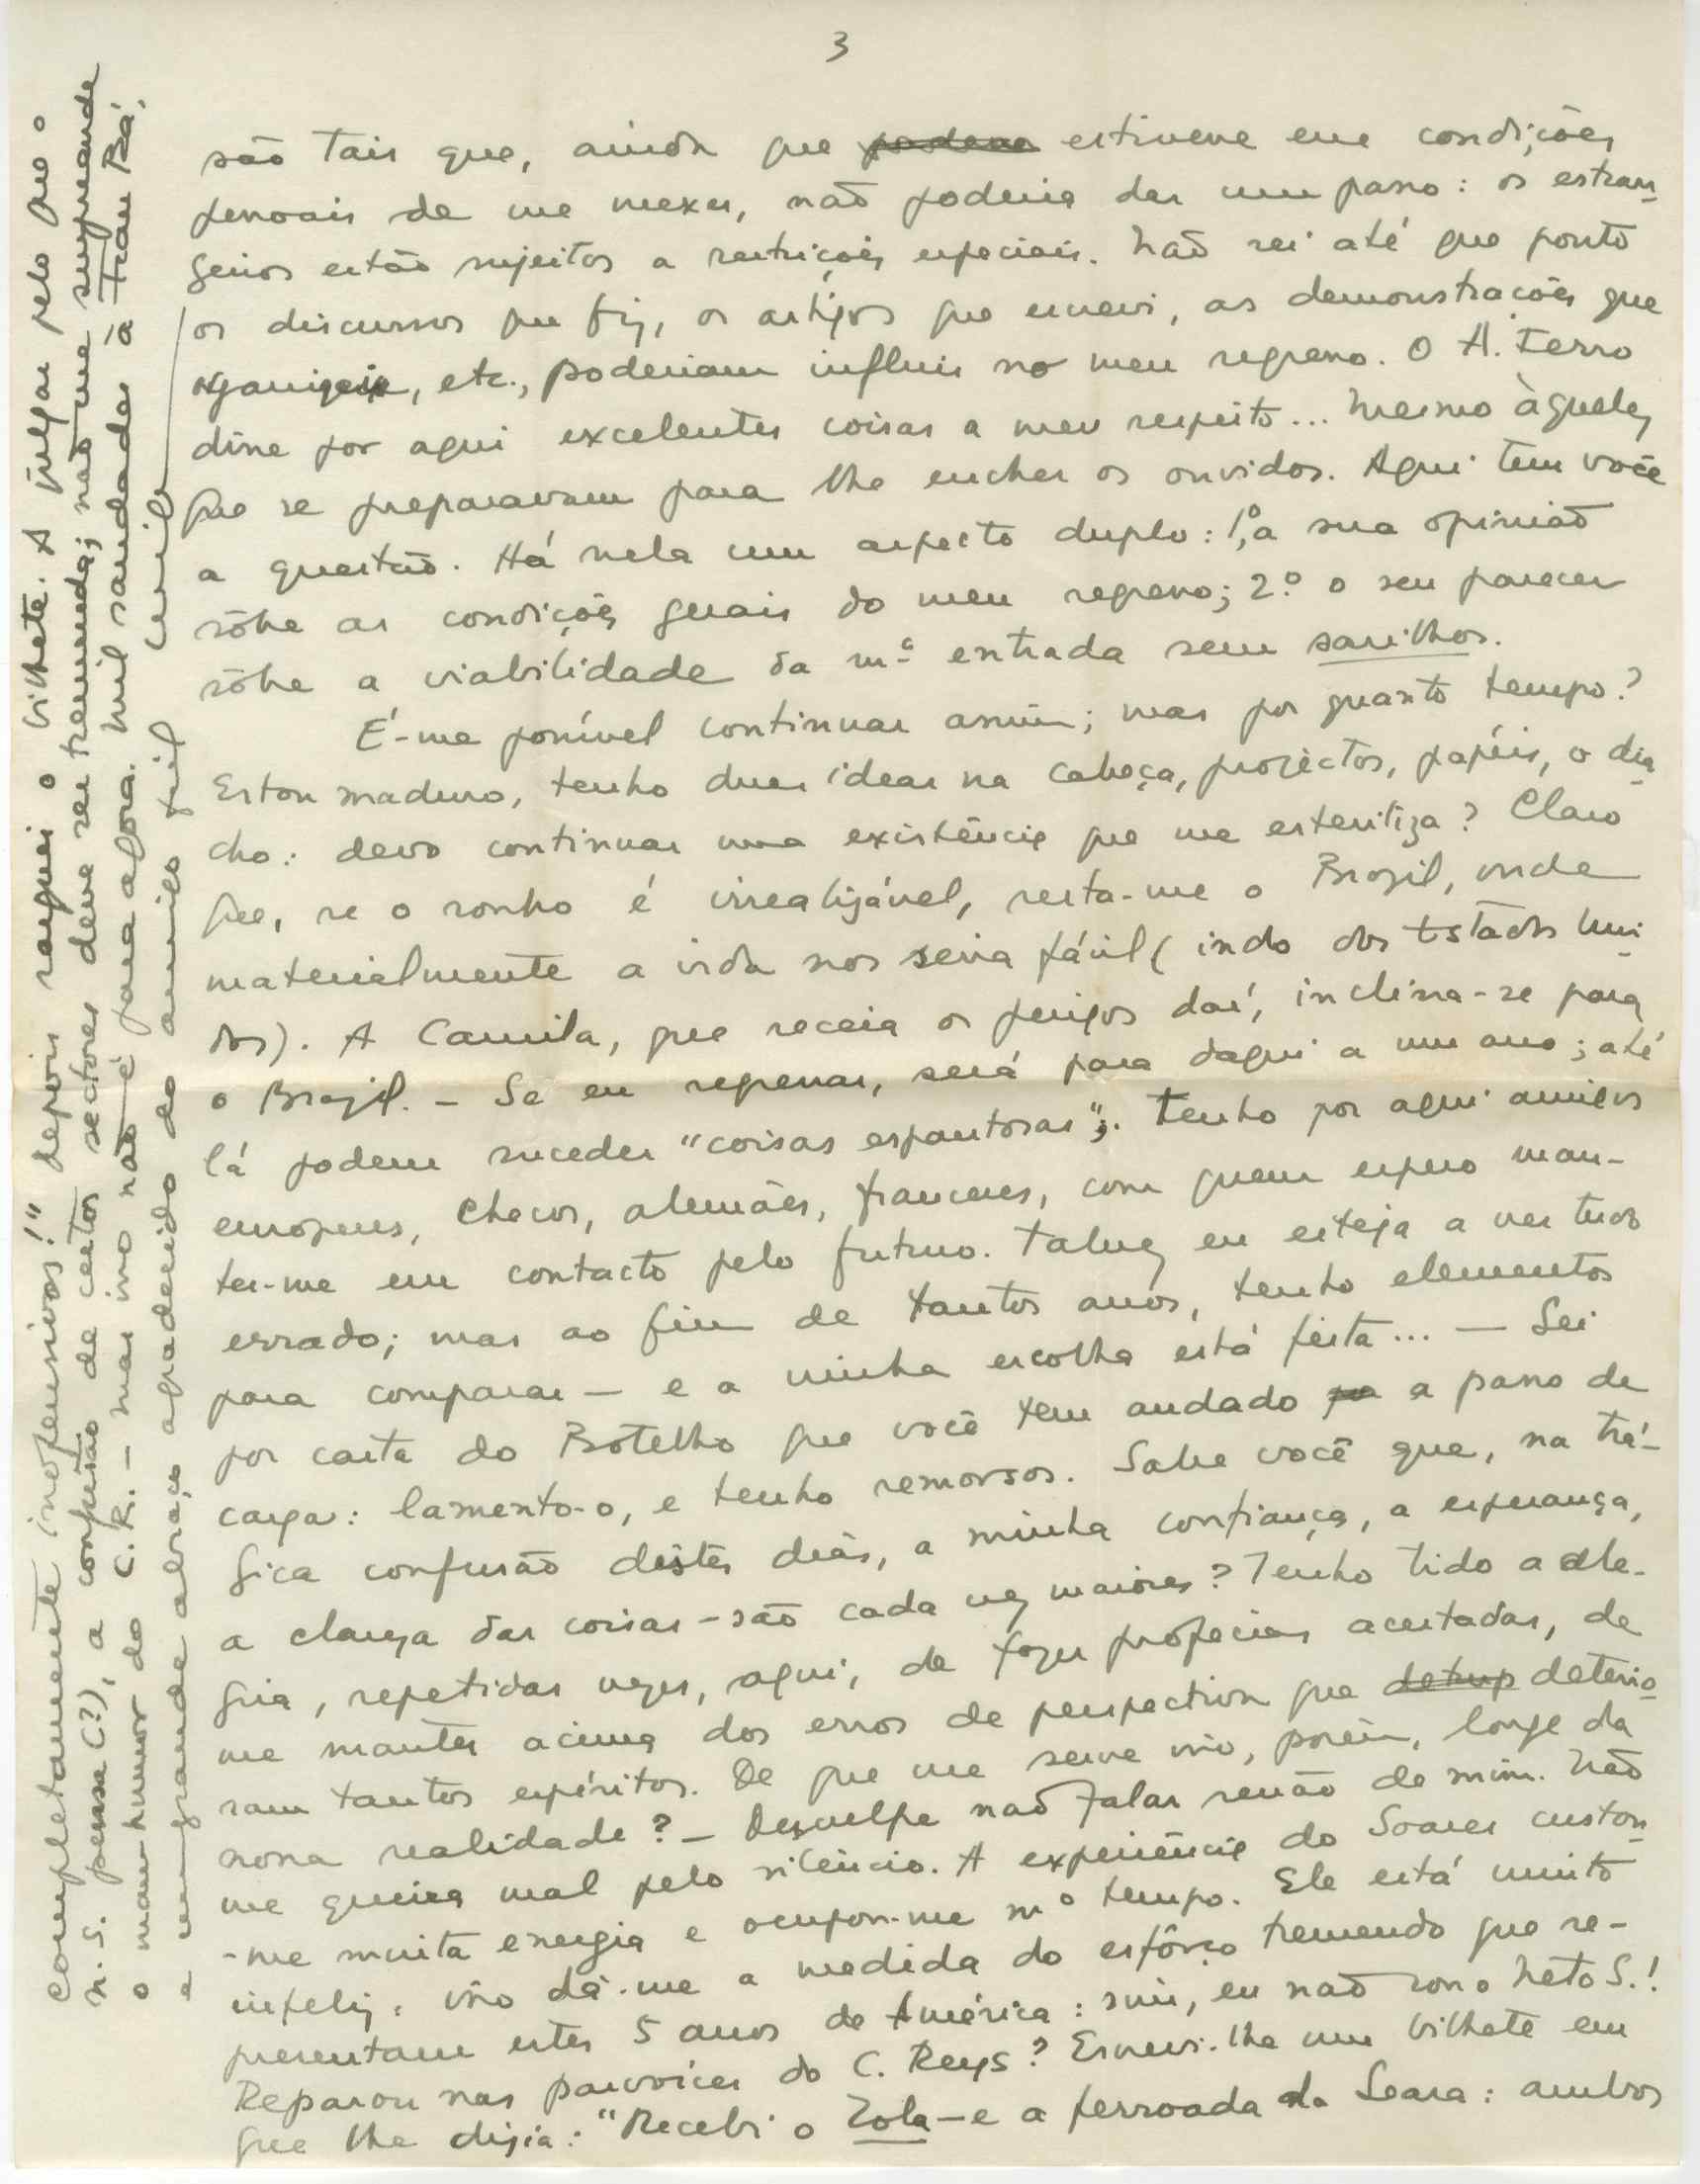 3
são tais que, ainda que pudesse estivesse em condições
pessoais de me mexer, não poderia dar um passo: os estran-
geiros estão sujeitos a restrições especiais. Não sei até que ponto
os discursos que fiz, os artigos que escrevi, as demonstrações que
organizei, etc., poderiam influir no meu regresso. O A. Ferro
disse por aqui excelentes coisas a meu respeito... Mesmo àqueles
que se preparavam para lhe encher os ouvidos. Aqui tem você
a questão. Há nela um aspecto duplo: 1º, a sua opinião
sôbre as condições gerais do meu regresso; 2.º o seu parecer
sôbre a viabilidade da m.ª entrada sem sarilhos.
É-me possível continuar assim; mas por quanto tempo?
Estou maduro, tenho duas ideas na cabeça, projectos, papéis, o dia-
cho: devo continuar uma existência que me esteriliza? Claro
que, se o sonho é irrealizável, resta-me o Brazil, onde
materialmente a vida nos seria fácil (indo dos Estados Uni-
dos). A Camila, que receia os perigos daí, inclina-se para
o Brazil. - Se eu regressar, será para daqui a um ano; até
lá podem suceder "coisas espantosas". Tenho por aqui amigos
europeus, checos, alemães, franceses, com quem espero man-
ter-me em contacto pelo futuro. Talvez eu esteja a ver tudo
errado; mas ao fim de tantos anos, tenho elementos
para comparar — e a minha escolha está feita... — Sei
por carta do Botelho que você tem andado a passo de
carga: lamento-o, e tenho remorsos. Sabe você que, na trá-
gica confusão dêstes dias, a minha confiança, a esperança,
a clareza das coisas - são cada vez maiores? Tenho tido a ale-
gria, repetidas vezes, aqui, de fazer profecias acertadas, de
me manter acima dos erros de perspectiva que deterio-
ram tantos espíritos. De que me serve isso, porém, longe da
nossa realidade? - Desculpe não falar senão de mim. Não
me queira mal pelo silêncio. A experiência do Soares custou-
-me muita energia e ocupou-me m.º tempo. Ele está muito
infeliz: isso dá-me a medida do esfôrço tremendo que re-
presentam estes 5 anos de América: sim, eu não sou o Neto S.!
Reparou nas parvoíces do C. Reys? Escrevi-lhe um bilhete em
que lhe dizia: "Recebi o Zola - e a ferroada da Seara: ambos
completamente inofensivos!" depois rasguei o bilhete. A julgar pelo que o
N. S. pensa (?), a confusão de certos sectores deve ser tremenda; não me surpreende
o mau-humor do C. R. - mas isso não é para agora. Mil saudades à Frau Rá,
e um grande abraço agradecido do amigo fiel